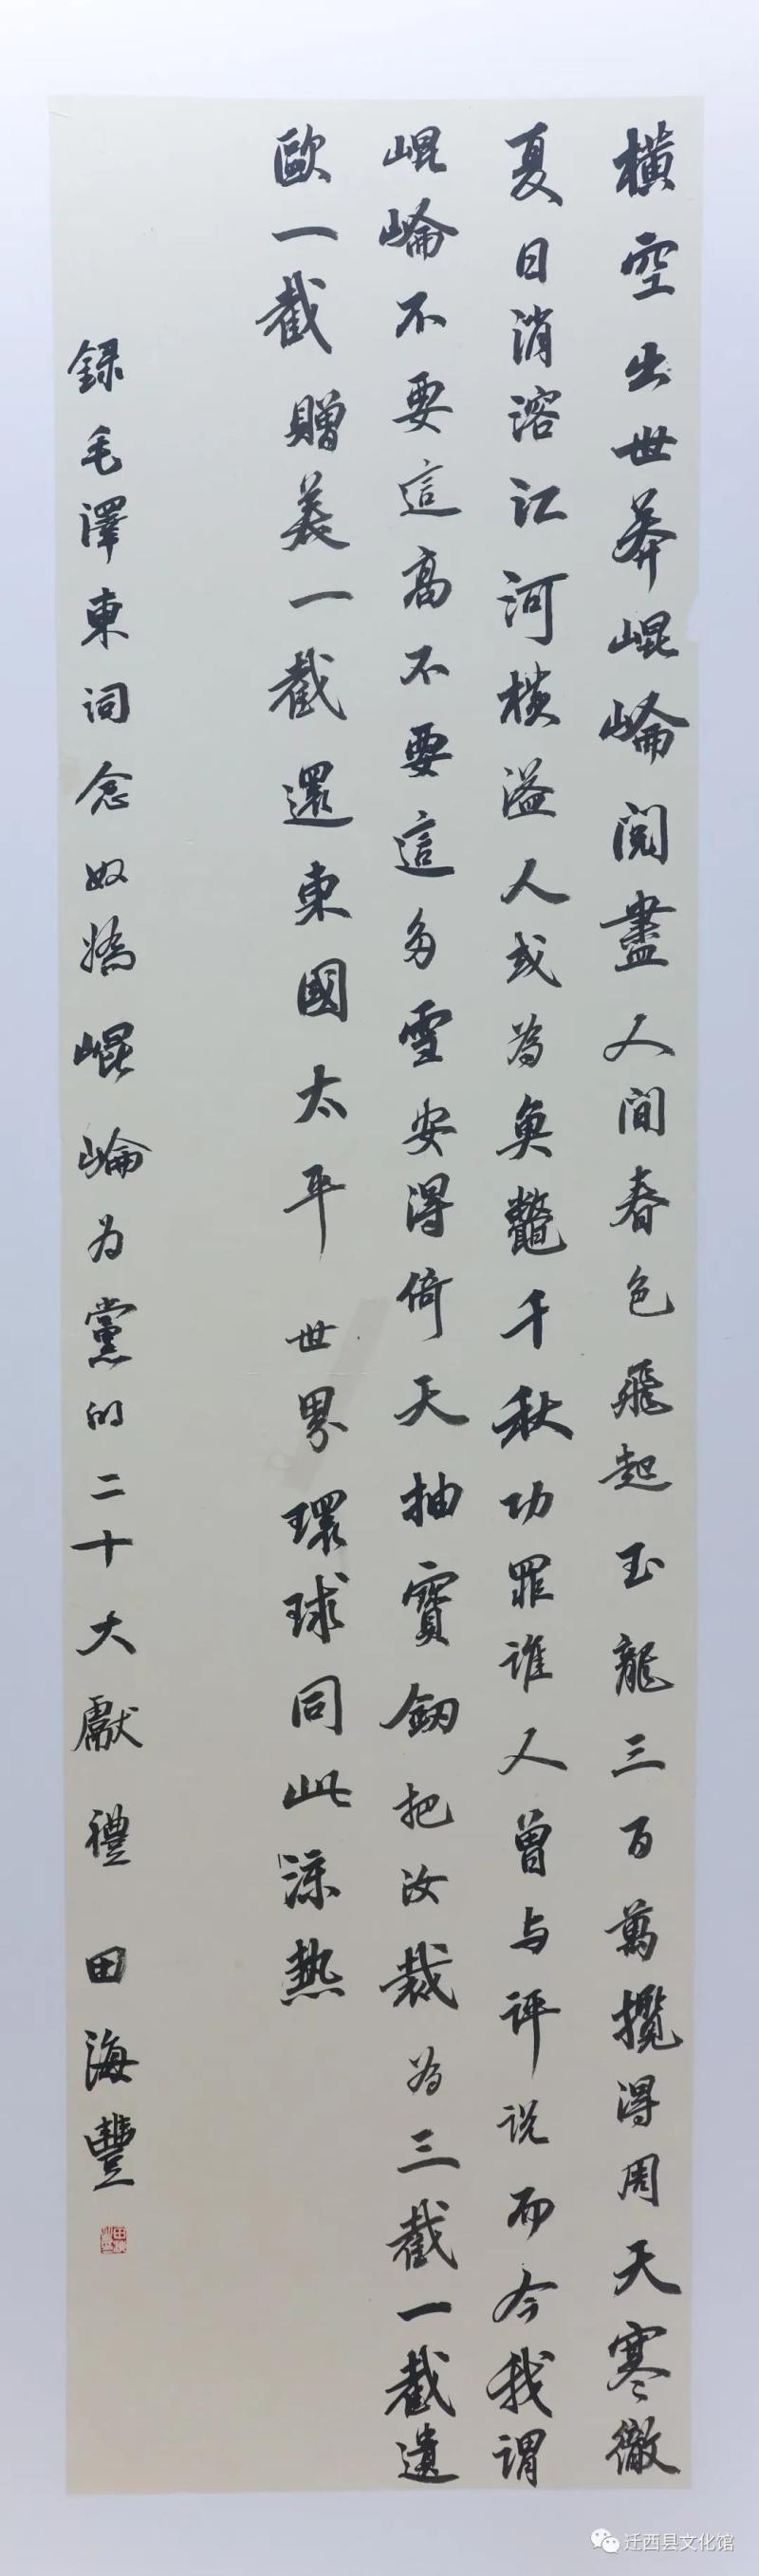 橫空出世莽崐崘閱盡人間春色飛起玉龍三百萬攬得周天寒徹
夏日消溶江河横溢人或為魚鼈千秋功罪誰人曾与評说而今我謂
崐崘不要這高不要這多雪安得倚天抽寶劒把汝裁為三截一截遺
歐一截贈美一截還東國太平世界環球同此涼热
録毛澤東词念奴嬌崐崘为黨的二十大獻禮 田海豐
迁西县文化馆